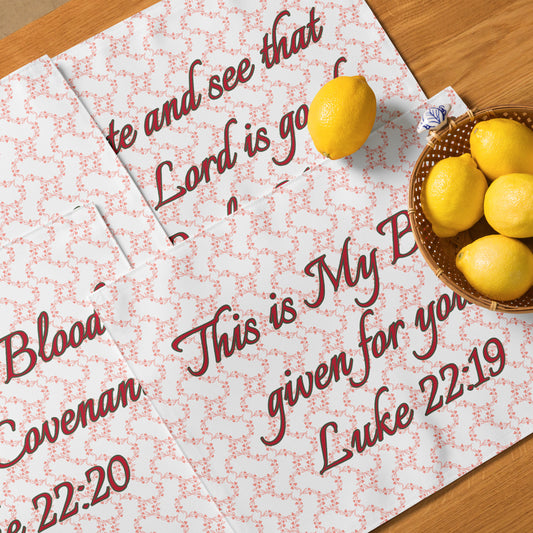 te and see that
Lord is go
This is My B
given for you
Luke 22:19
Blood
Covenan
e 22:20